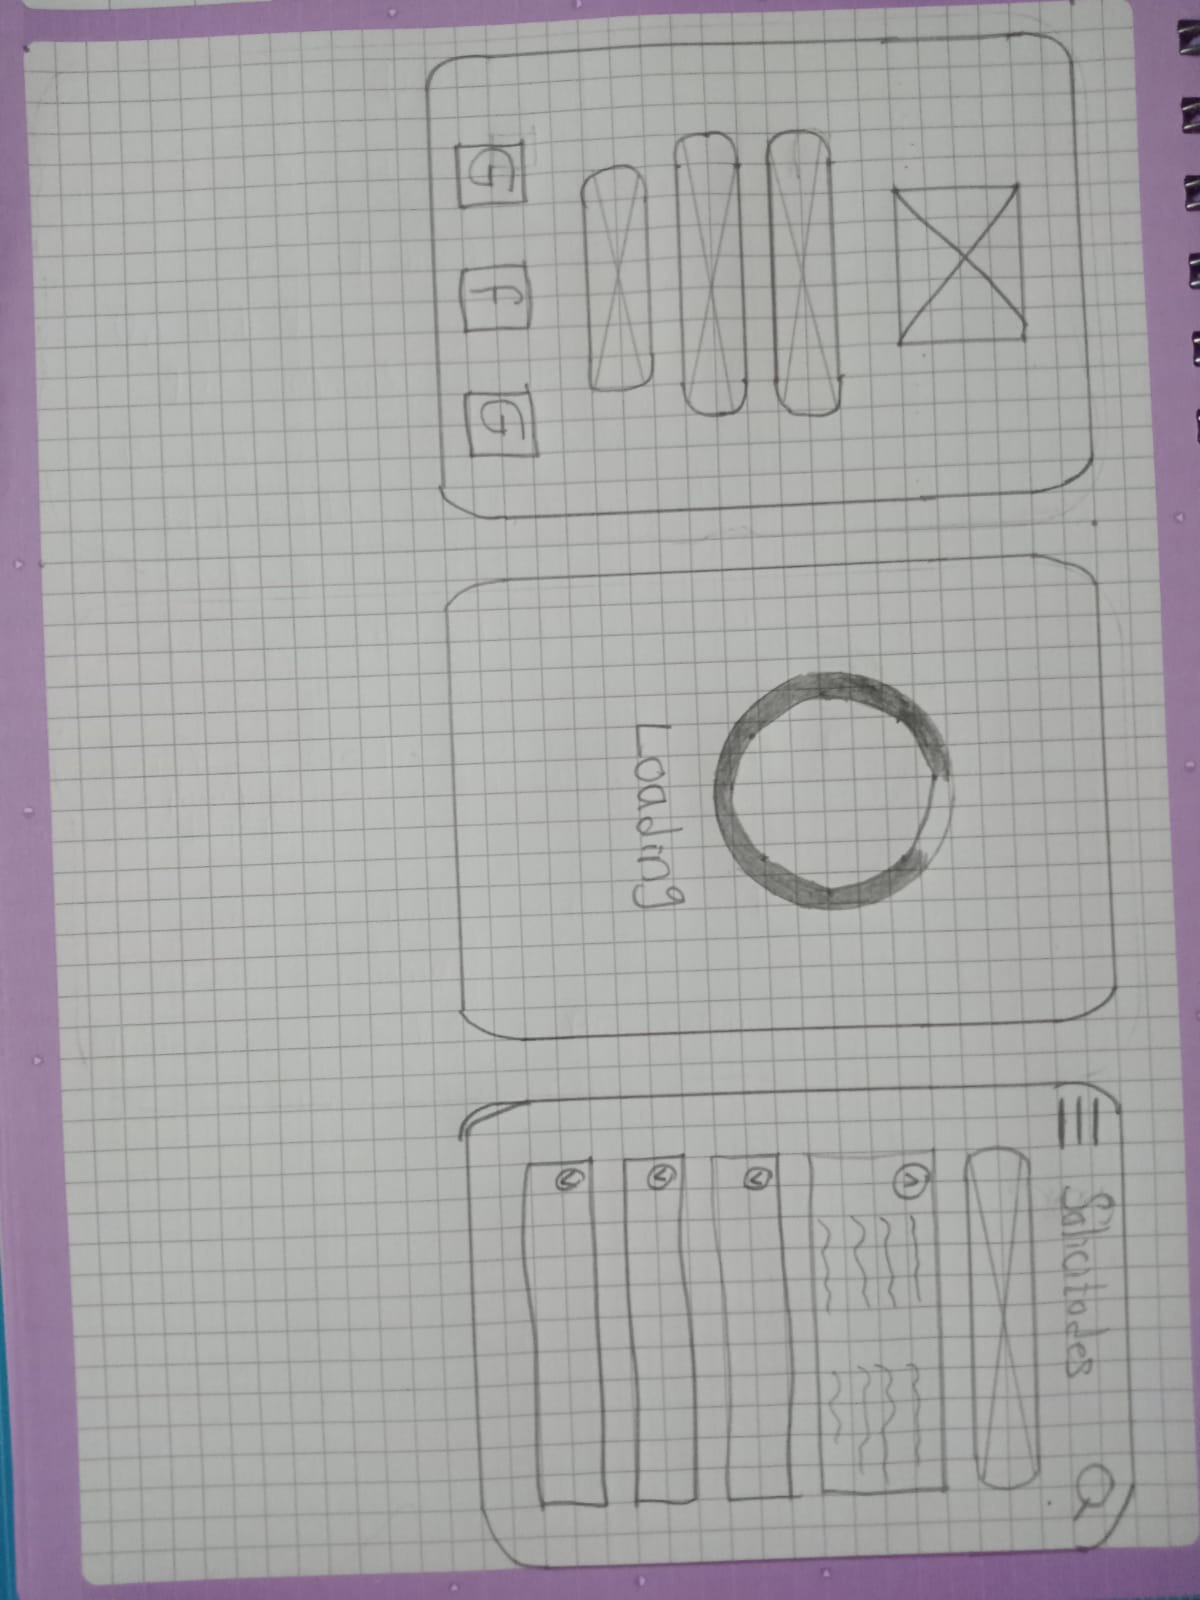 G f G
Loading
Solicitudes